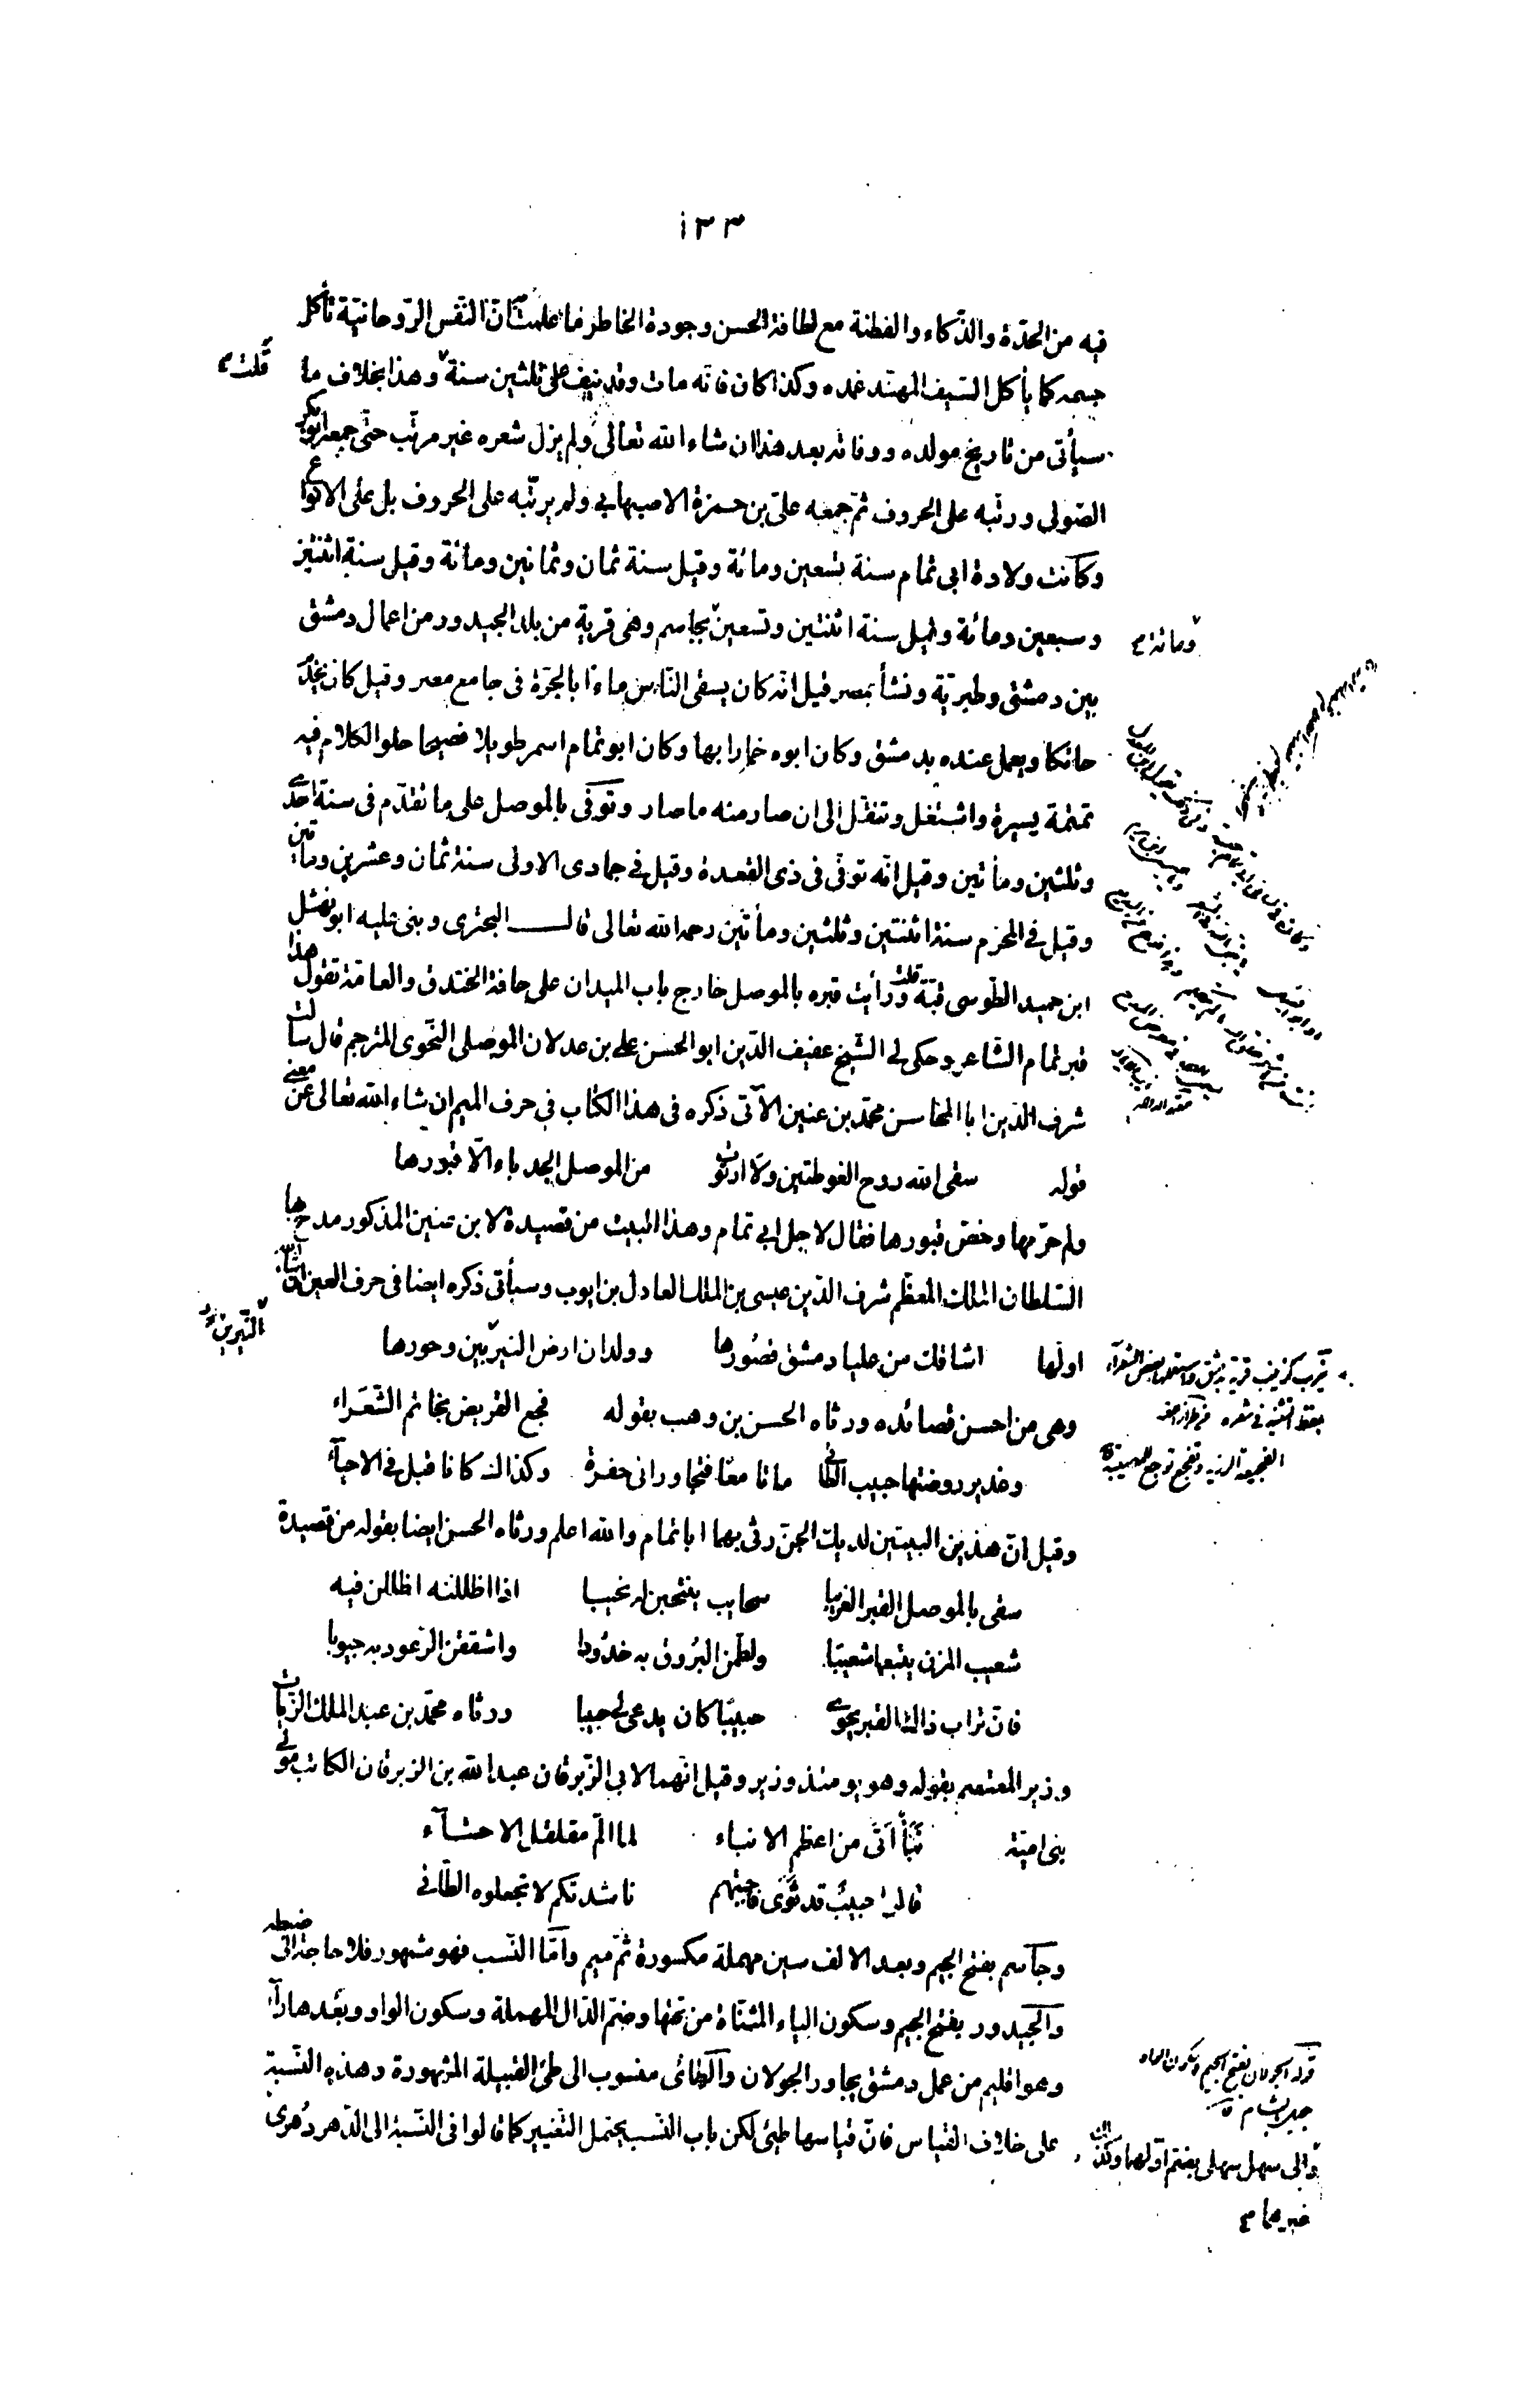 ١٣٣
فيه من الحدّة والذّكاء والفطنة مع لطافة الحسن وجودة الخاطر فعلمت انّ النّفس الرّوحانيّة تأكل
جسمه كما يأكل السّيف المهنّد غمده وكذا كان فانّه مات وقد نيف على ثلثين سنة وهذا بخلاف ما
قلت
سيأتى من تاريخ مولده ووفاته بعد هذا ان شاء الله تعالى ولم يزل شعره غير مرتّب حتّى جمعه ابو بكر
الصّولى ورتّبه على الحروف ثمّ جمعه علىّ بن حمزة الاصبهانى ولم يرتّبه على الحروف بل على الانواع
وكانت ولادة ابى تمام سنة تسعين ومائة وقيل سنة ثمان وثمانين ومائة وقيل سنة اثنتين
وسبعين ومائة وقيل سنة اثنتين وتسعين بجاسم وهى قرية من بلد الجيدور من اعمال دمشق
ومائة
بين دمشق وطبريّة ونشأ بمصر قيل انّه كان يسقى النّاس ماءً بالجرّة فى جامع مصر وقيل كان يخدم
حائكا ويعمل عنده بدمشق وكان ابوه خمارا بها وكان ابو تمام اسمر طويلا فصيحا حلو الكلام فيه
تمتمة يسيرة واشتغل وتنقّل الى ان صار منه ما صار وتوفّى بالموصل على ما تقدّم فى سنة احدى
وثلثين ومأتين وقيل انّه توفّى فى ذى القعدة وقيل فى جمادى الاولى سنة ثمان وعشرين ومأتين
وقيل فى المحرّم سنة اثنتين وثلثين ومأتين رحمه الله تعالى قال البحترى وبنى عليه ابو نهشل
ابن حميد الطّوسى قبّة قلت ورأيت قبره بالموصل خارج باب الميدان على حافة الخندق والعامّة تقول هذا
قبر تمام الشّاعر وحكى لى الشّيخ عفيف الدّين ابو الحسن على بن عدلان الموصلى النّحوى المترجم قال سألت
شرف الدّين ابا المحاسن محمّد بن عنين الآتى ذكره فى هذا الكتاب فى حرف الميم ان شاء الله تعالى عن معنى
قوله سقى الله روح الغوطتين ولا ارتوت من الموصل الجدباء الّا قبورها
ولم حرّمها وخصّ قبورها فقال لاجل ابى تمام وهذا البيت من قصيدة لابن عنين المذكور مدح بها
السّلطان الملك المعظّم شرف الدّين عيسى بن الملك العادل بن ايوب وسيأتى ذكره ايضا فى حرف العين ان شاء
اولها اشاقك من عليا دمشق قصورها وولدان ارض النيربين وحورها
النّيربين
نيرب كزينب قرية بدمشق
وهى من احسن قصائده ورثاه الحسن بن وهب بقوله فجع القريض بخاتم الشّعراء
وغدير روضتها حبيب الطّائى ماتا معًا فتجاورا فى حفرة وكذاك كانا قبل فى الاحيآء
وقيل انّ هذين البيتين لديك الجنّ رثى بهما ابا تمام والله اعلم ورثاه الحسن ايضا بقوله من قصيدة
سقى بالموصل القبر الغريبا سحايب ينتحبن له نحيبا اذا اظللنه اظللن فيه
شعيب المزن يتبعها شعيبا ولطّمن البروق به خدودا واشققن الرّعود به جيوبا
فانّ تراب ذاك القبر يحوى حبيبًا كان يدعى لى حبيبا ورثاه محمّد بن عبد الملك الزّيات
وزير المعتصم بقوله وهو يومئذ وزير وقيل انّهما لابى الزّبرقان عبد الله بن الزبرقان الكاتب مولى
بنى اميّة نبأ اتى من اعظم الانباء لما المّ مقلقل الاحشآء
قالوا حبيب قد ثوى فاجبتهم ناشدتكم لا تجعلوه الطّائى
وجآسم بفتح الجيم وبعد الالف سين مهملة مكسورة ثمّ ميم وامّا النّسب فهو مشهور فلا حاجة الى ضبطه
والجيدور بفتح الجيم وسكون الياء المثنّاة من تحتها وضمّ الدّال المهملة وسكون الواو وبعدها رآء
وهو اقليم من عمل دمشق يجاور الجولان والطّائى منسوب الى طىّ القبيلة المشهورة وهذه النّسبة
على خلاف القياس فانّ قياسها طيئى لكن باب النّسب يحتمل التّغيير كما قالوا فى النّسبة الى الدّهر دُهرى
قوله الجولان بفتح الجيم وسكون الواو
جبل بالشام
والى سهل سهلى بضم اوّلهما وكذلك
غيرهما